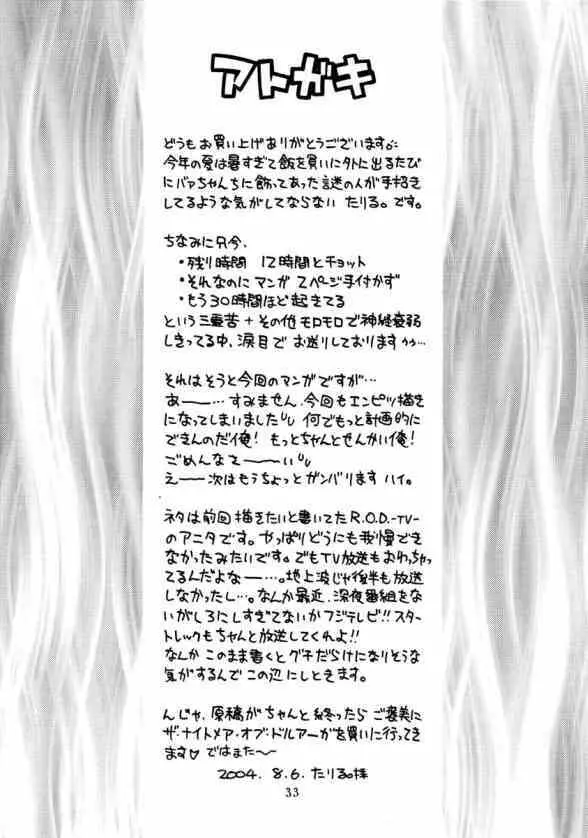 アトガキ
どうもお買い上げありがとうございます♪
今年の夏は暑すぎて飯を買いに外に出るたび
にバァちゃんちに飾ってあった謎の人が手招き
してるような気がしてならない たりる。です。
ちなみに只今、
・残り時間 12時間とチョット
・それなのに マンガ 2ページ手付かず
・もう30時間ほど起きてる
という三重苦+その他モロモロで神経衰弱
しきってる中、涙目で お送りしております…
それはそうと今回のマンガですが…
あー――…すみません、今回もエンピツ描き
になってしまいました 何でもっと計画的に
できんのだ俺! もっとちゃんとせんかい俺!
ごめんなさ~~~い
えー―次はもうちょっとガンバリます ハイ。
ネタは前回描きたいと書いてたR.O.D.-TV-
のアニタです。やっぱりどうにも我慢でき
なかったみたいです。でもTV放送もおわっちゃ
ってるんだよなー――…。地上波じゃ後半も放送
しなかったし…。なんか最近、深夜番組をな
いがしろにしすぎてないかフジテレビ!!スター
トレックもちゃんと放送してくれよ!!
なんか このまま書くと グチだらけになりそうな
気がするんで この辺にしときます。
んじゃ、原稿がちゃんと終ったら ご褒美に
ザ・ナイトメア・オブ・ドルアーガを買いに行ってき
ます♡ ではまた~~
2004. 8. 6. たりる。様
33